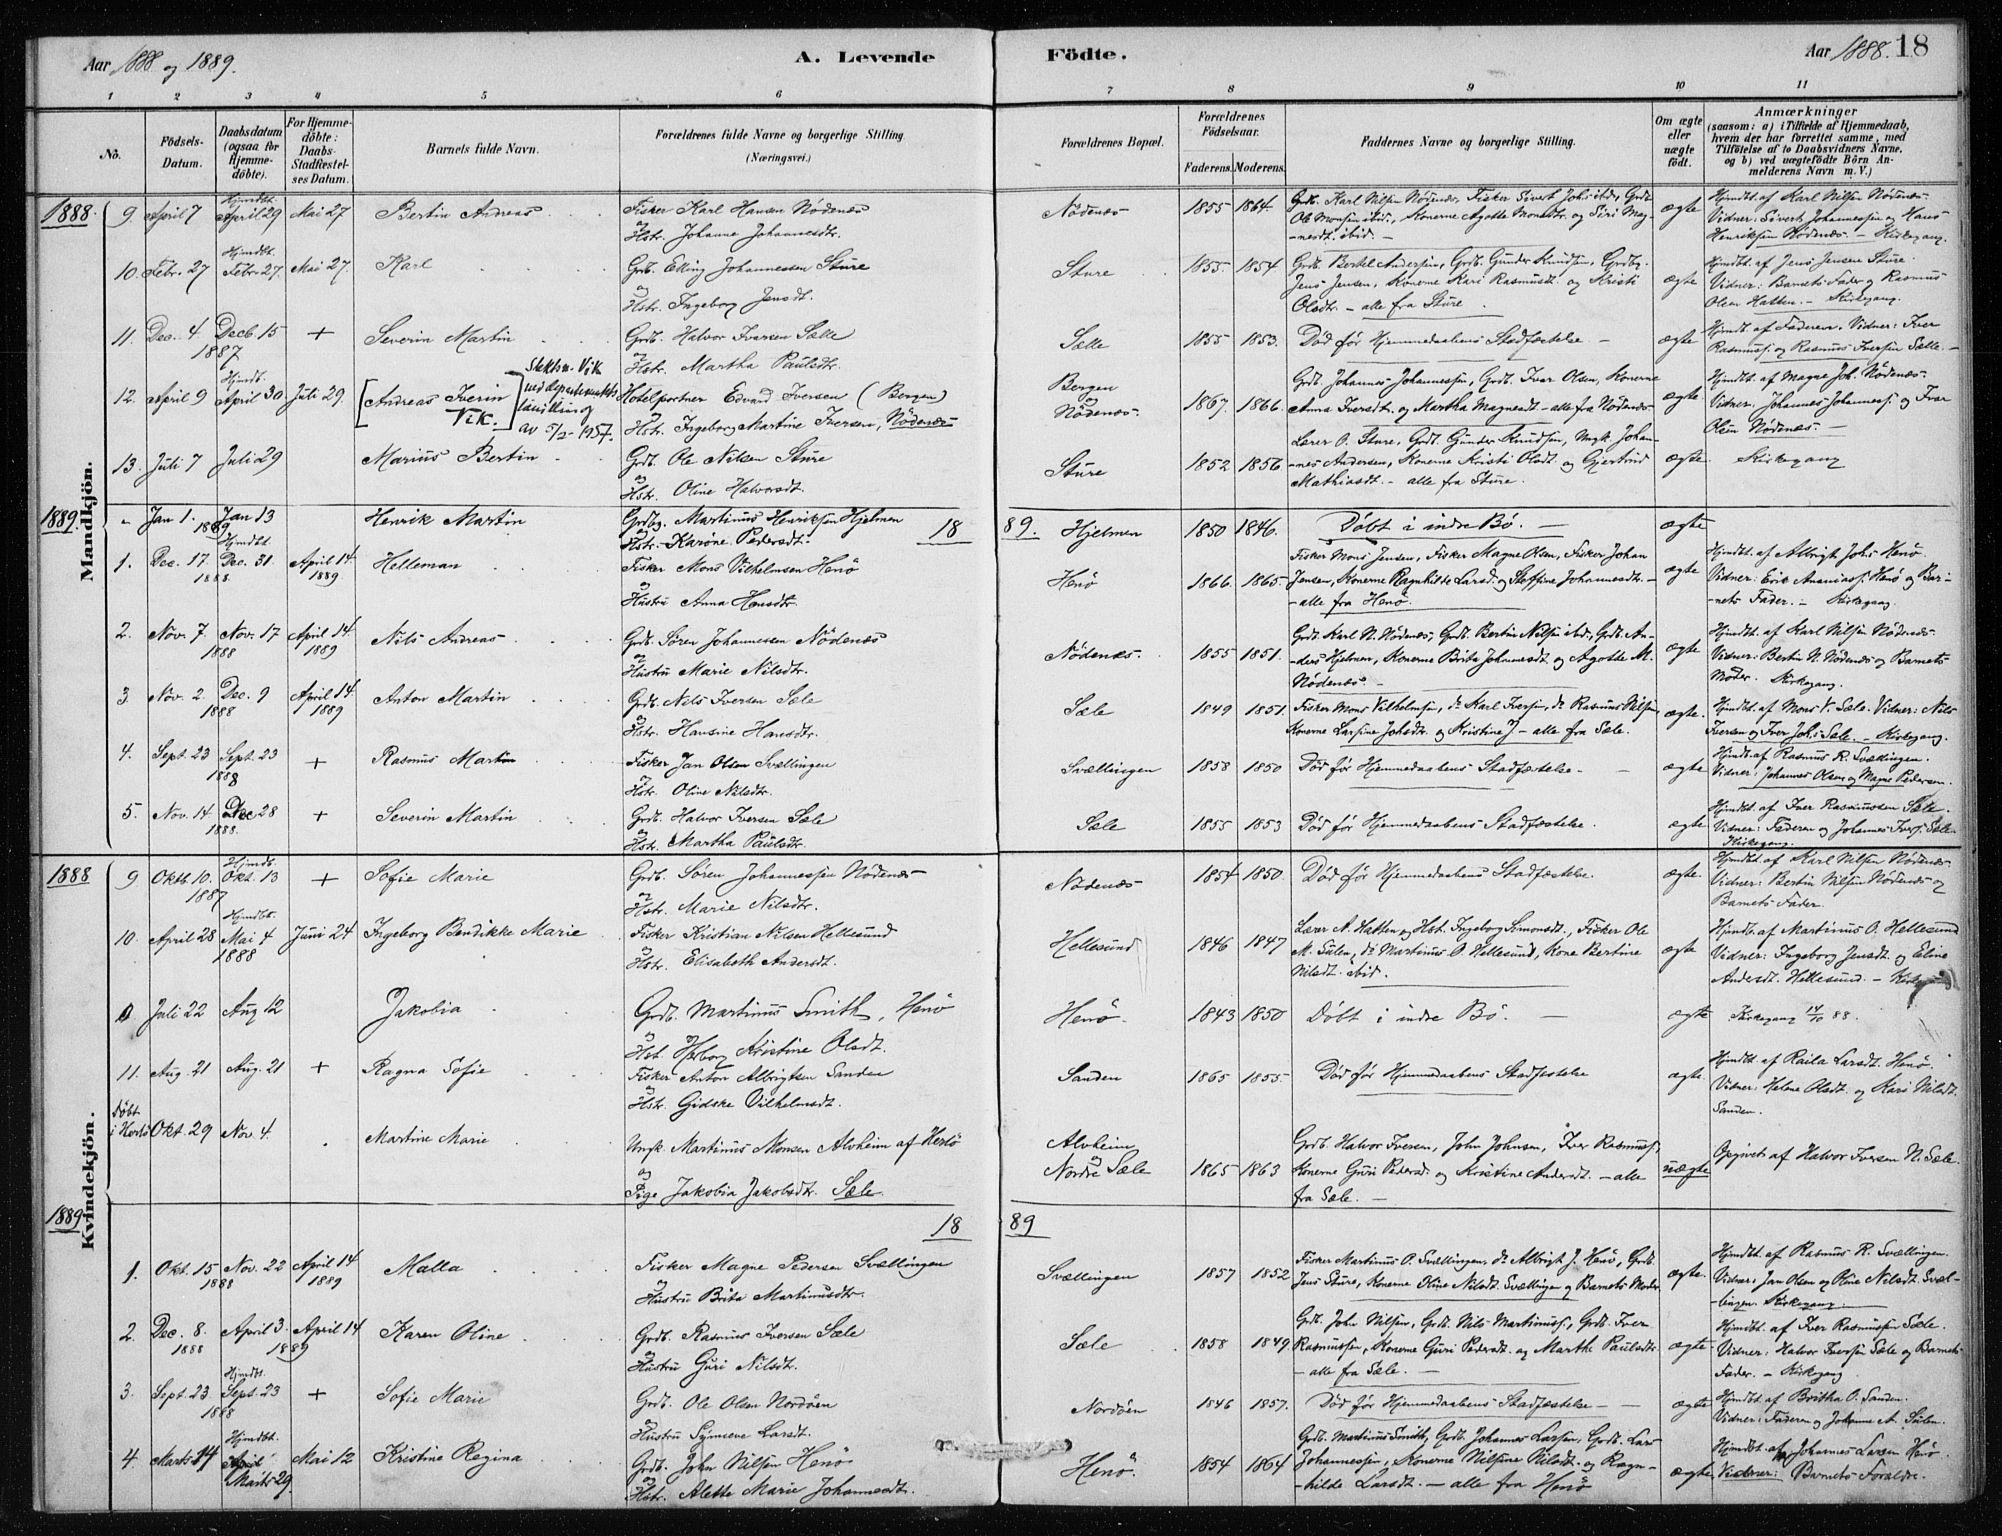 Aar 1888 og 1889.
A. Levende
Födte.
Aar 1888. 18
1 2 3 4 5 6 7 8 9 10 11
No.
Födsels-Datum.
Daabsdatum (ogsaa for Hjemme-döbte).
For Hjemme-döbte: Daabs-Stadfæstel-ses Datum.
Barnets fulde Navn.
Forældrenes fulde Navne og borgerlige Stilling. (Næringsvei.)
Forældrenes Bopæl.
Forældrenes Födselsaar.
Faderens. Moderens.
Faddernes Navne og borgerlige Stilling.
Om ægte eller uægte födt.
Anmærkninger
(saasom: a) i Tilfælde af Hjemmedaab, hvem der har forrettet samme, med Tilföielse af to Daabsvidners Navne, og b) ved uægtefödte Börn An-melderens Navn m. V.)
Mandkjön.
1888. 9. April 7 Hjmdbt. April 29 Mai 27 Bertin Andreas Fisker Karl Hansen Nödenæs og Hstr. Johanne Johannesdtr. Nödenæs 1855 1864. Grdb. Karl Nilsen Nödenæs, Fisker Sivert Johs. ibd., Grdb. Ole Monsen ibid., Konerne Agotte Monsdtr. og Siri Mag-nesdt. ibid. – ægte Hjmdbt. af Karl Nilsen Nödenæs. Vidner: Sivert Johannessen og Hans Henriksen Nödenæs. – Kirkegang.
10. Febr. 27 Hjmdbt. Febr. 27. Mai 27. Karl Grdb. Elling Johannessen Sture og Hstr. Ingeborg Jensdt. Sture 1855. 1854 Grdb. Bertel Andersen, Grdb. Gunder Knudsen, Grdbg. Jens Jensen, Konerne Kari Rasmusdt. og Kristi Olsdtr. – alle fra Sture ægte Hjmdbt. af Jens Jensen Sture. Vidner: Barnets Fader og Rasmus Olsen Hatten. – Kirkegang.
11. Dec. 4 Decb. 15 1887 + Severin Martin Grdb. Halvor Iversen Sælle og Hstr. Martha Paulsdtr. Sælle 1855 1853. Död för Hjemmedaabens Stadfæstelse – ægte Hjmdt. af Faderen. Vidner: Iver Rasmuss. og Rasmus Iversen Sælle. –
12. April 9 Hjmdt. April 30 Juli 29. [Andreas Iverin Vik.] Slektsn. Vik ved departementets bevilling av 5/2-1957. Hotelportner Edvard Iversen (Bergen) og Hstr. Ingeborg Martine Iversen, Nödenæs Bergen Nödenæs. 1867. 1866. Grdb. Johannes Johannessen, Grdb. Iver Olsen, Konerne Anna Iversdt. og Martha Magnesdt – alle fra Nödenæs. ægte Hjmdbt. af Magne Joh. Nödenæs. Vidner: Johannes Johanness. og Iver Olsen Nödenæs. –
13. Juli 7 Juli 29 Marius Bertin Grdb. Ole Nilsen Sture og Hstr. Oline Halvorsdt. Sture 1852 1856 Lærer O. Sture, Grdb. Gunder Knudsen, Ungk. Johan-nes Andersen, Konerne Kristi Olsdt. og Gjertrud Mathiasdt. – alle fra Sture. ægte. Kirkegang
1889. - Jan 1. Jan 13 1889 Henrik Martin Grdbg. Martinus Henriksen Hjelmen Hstr. Karöne Pedersdt. 18 89. Hjelmen 1850 1846. Döbt i indre Bö. – ægte
1. Dec. 17 1888. Hjmdbt. Dec. 31 April 14. 1889 Helleman Fisker Mons Vilhelmsen Henö og Hustru Anna Hansdtr. Henö 1866. 1865 Fisker Mons Jensen, Fisker Magne Olsen, Fisker Johan Jensen, Konerne Ragnhilde Larsd. og Steffine Johannesdtr. – – alle fra Henö. ægte Hjmdbt. af Albrigt Johs. Henö. Vidner: Erik Ananiass. Henö og Bar-nets Fader. – Kirkegang.
2. Nov. 7 Nov. 17 1888 April 14. 1889 Nils Andreas Grdb. Sören Johannessen Nödenæs og Hustru Marie Nilsdtr. Nödenæs. 1855 1851. Grdb. Karl N. Nödenæs, Grdb. Bertin Nilsen ibd., Grdb. An-ders Hjelmen, Konerne Brita Johannesdt. og Agotte M. Nödenæs. – ægte Hjmdbt. af Karl Nilsen Nödenæs. Vidner: Bertin N. Nödenæs og Barnets Moder. Kirkegang.
3. Nov. 2. Dec. 9 1888 April 14 1889 Anton Martin Grdb. Nils Iversen Sæle og Hstr. Hansine Hansdtr. Sæle 1849 1851. Fisker Mons Vilhelmsen, do. Karl Iversen, do. Rasmus Nilsen, Konerne Larsine Johsdt. og Kristine J – alle fra Sæle. ægte. Hjmdbt. af Mons V. Sæle. Vidner: Nils Iversen og Iver Johs. Sæle. – Kirkegang.
4. Sept. 23 Sept. 23 1888 + Rasmus Martin Fisker Jan Olsen Svællingen og Hstr. Oline Nilsdtr. Svællingen 1858 1850 Död för Hjemmedaabens Stadfæstelse. – ægte Hjmdt. af Rasmus R. Svællingen. Vidner: Johannes Olsen og Magne Pedersen.
5. Nov. 14 Dec 28 1888. + Severin Martin Grdb. Halvor Iversen Sæle og Hstr. Martha Paulsdtr. Sæle 1855 1853 Död för Hjemmedaabens Stadfæstelse. ægte Hjmdbt. af Iver Rasmussen Sæle. Vidner: Faderen og Johannes Ivers. Sæle. Kirkegang.
Kvindekjön.
1888 9 Oktb. 10. Hjmdb. Okt. 13 1887 + Sofie Marie Grdb. Sören Johannessen Nödenæs og Hstr. Marie Nilsdtr. Nödenæs 1854 1850. Död för Hjemmedaabens Stadfæstelse. ægte. Hjmdbt. af Karl Nilsen Nödenæs. Vidner: Bertin Nilsen Nödenæs og Barnets Fader.
10. April 28 Hjmdbt. Mai 4 1888 Juni 24 Ingeborg Bendikke Marie Fisker Kristian Nilsen Hellesund og Hstr. Elisabeth Andersdt. Hellesund 1846 1847 Lærer A. Hatten og Hst. Ingeborg Simonsdt., Fisker Ole M. Sulen, do. Martinus O. Hellesund, Kone Bertine Nilsdt. ibid. ægte Hjmdbt. af Martinus O. Hellesund Vidner: Ingeborg Jensdt. og Eline Andersdt. Hellesund. –
0 Juli 22 Aug 12 Jakobia Grdb. Martinus Smith, Henö og Hst. Herborg Kristine Olsdt. Henö. 1843 1850 Döbt i indre Bö. – ægte Kirkegang 14/10 88.
11. Aug. 21 Aug. 21 + Ragna Sofie Fisker Anton Albrigtsen Sanden og Hstr. Gidske Vilhelmsdt. Sanden 1865 1855. Död för Hjemmedaabens Stadfæstelse ægte. Hjmdbt. af Raila Larsdt. Henö. Vidner: Helene Olsdt. og Kari Nilsdt. Sanden.
döbt i Herlö Okt. 29 Nov. 4. Martine Marie Ungk. Martinus Monsen Alvheim af Herlö og Pige Jakobia Jakobsdtr. Sæle. Alvheim og Nordre Sæle 1865 1863 Grdb. Halvor Iversen, John Johnsen, Iver Rasmuss., Konerne Guri Pedersd. og Kristine Andersdt. – alle fra Sæle. – uægte Opgivet af Halvor Iversen N. Sæle.
1889 18 89
1. Okt. 15 1888 Nov. 22 April 14 1889 Malla Fisker Magne Pedersen Svællingen og Hustru Brita Martinusdtr. Svællingen 1857 1852 Fisker Martinus O. Svællingen, do. Albrigt J. Henö, Grdb. Jens Sture, Konerne Oline Nilsdt. Svællingen og Barnets Moder. ægte. Hjmdbt. af Rasmus R. Svællingen. Vidner: Jan Olsen og Oline Nilsdt. Svæl-lingen. Kirkegang.
2. Dec. 8. 1888 April 3. April 14 1889 Karen Oline Grdb. Rasmus Iversen Sæle og Hustru Guri Nilsdt. Sæle 1858 1849 Grdb. John Nilsen, Grdb. Nils Martinuss., Grdb. Iver Rasmussen, Konerne Guri Pedersdt. og Marthe Paulsdtr – alle fra Sæle. – ægte Hjmdbt. af Iver Rasmussen Sæle. Vidner: Halvor Iversen Sæle og Barnets Fader. – Kirkegang
3. Sept. 23 1888 Hjmdbt. Sept. 23 + Sofie Marie Grdb. Ole Olsen Nordöen Hustru Synneve Larsdt. Nordöen 1846 1857. Död för Hjemmedaabens Stadfæstelse – – ægte Hjmdbt. af Britha O. Sanden. Vidner: Faderen og Johanne A. Sulen.
4. Marts 14 Hjmdbt. Marts 29. Mai 12 Kristine Regina Grdb. John Nilsen Henö og Hstr. Alette Marie Johannesdt. Henö. 1854 1864 Grdb. Martinus Smith, Grdb. Johannes Larsen, Grdb. Lars Johannessen, Konerne Nilsine Nilsdt. og Ragn-hilde Larsdt. – alle fra Henö ægte Hjmdbt. af Johannes Larsen Henö Vidner: Barnets Foreldre.